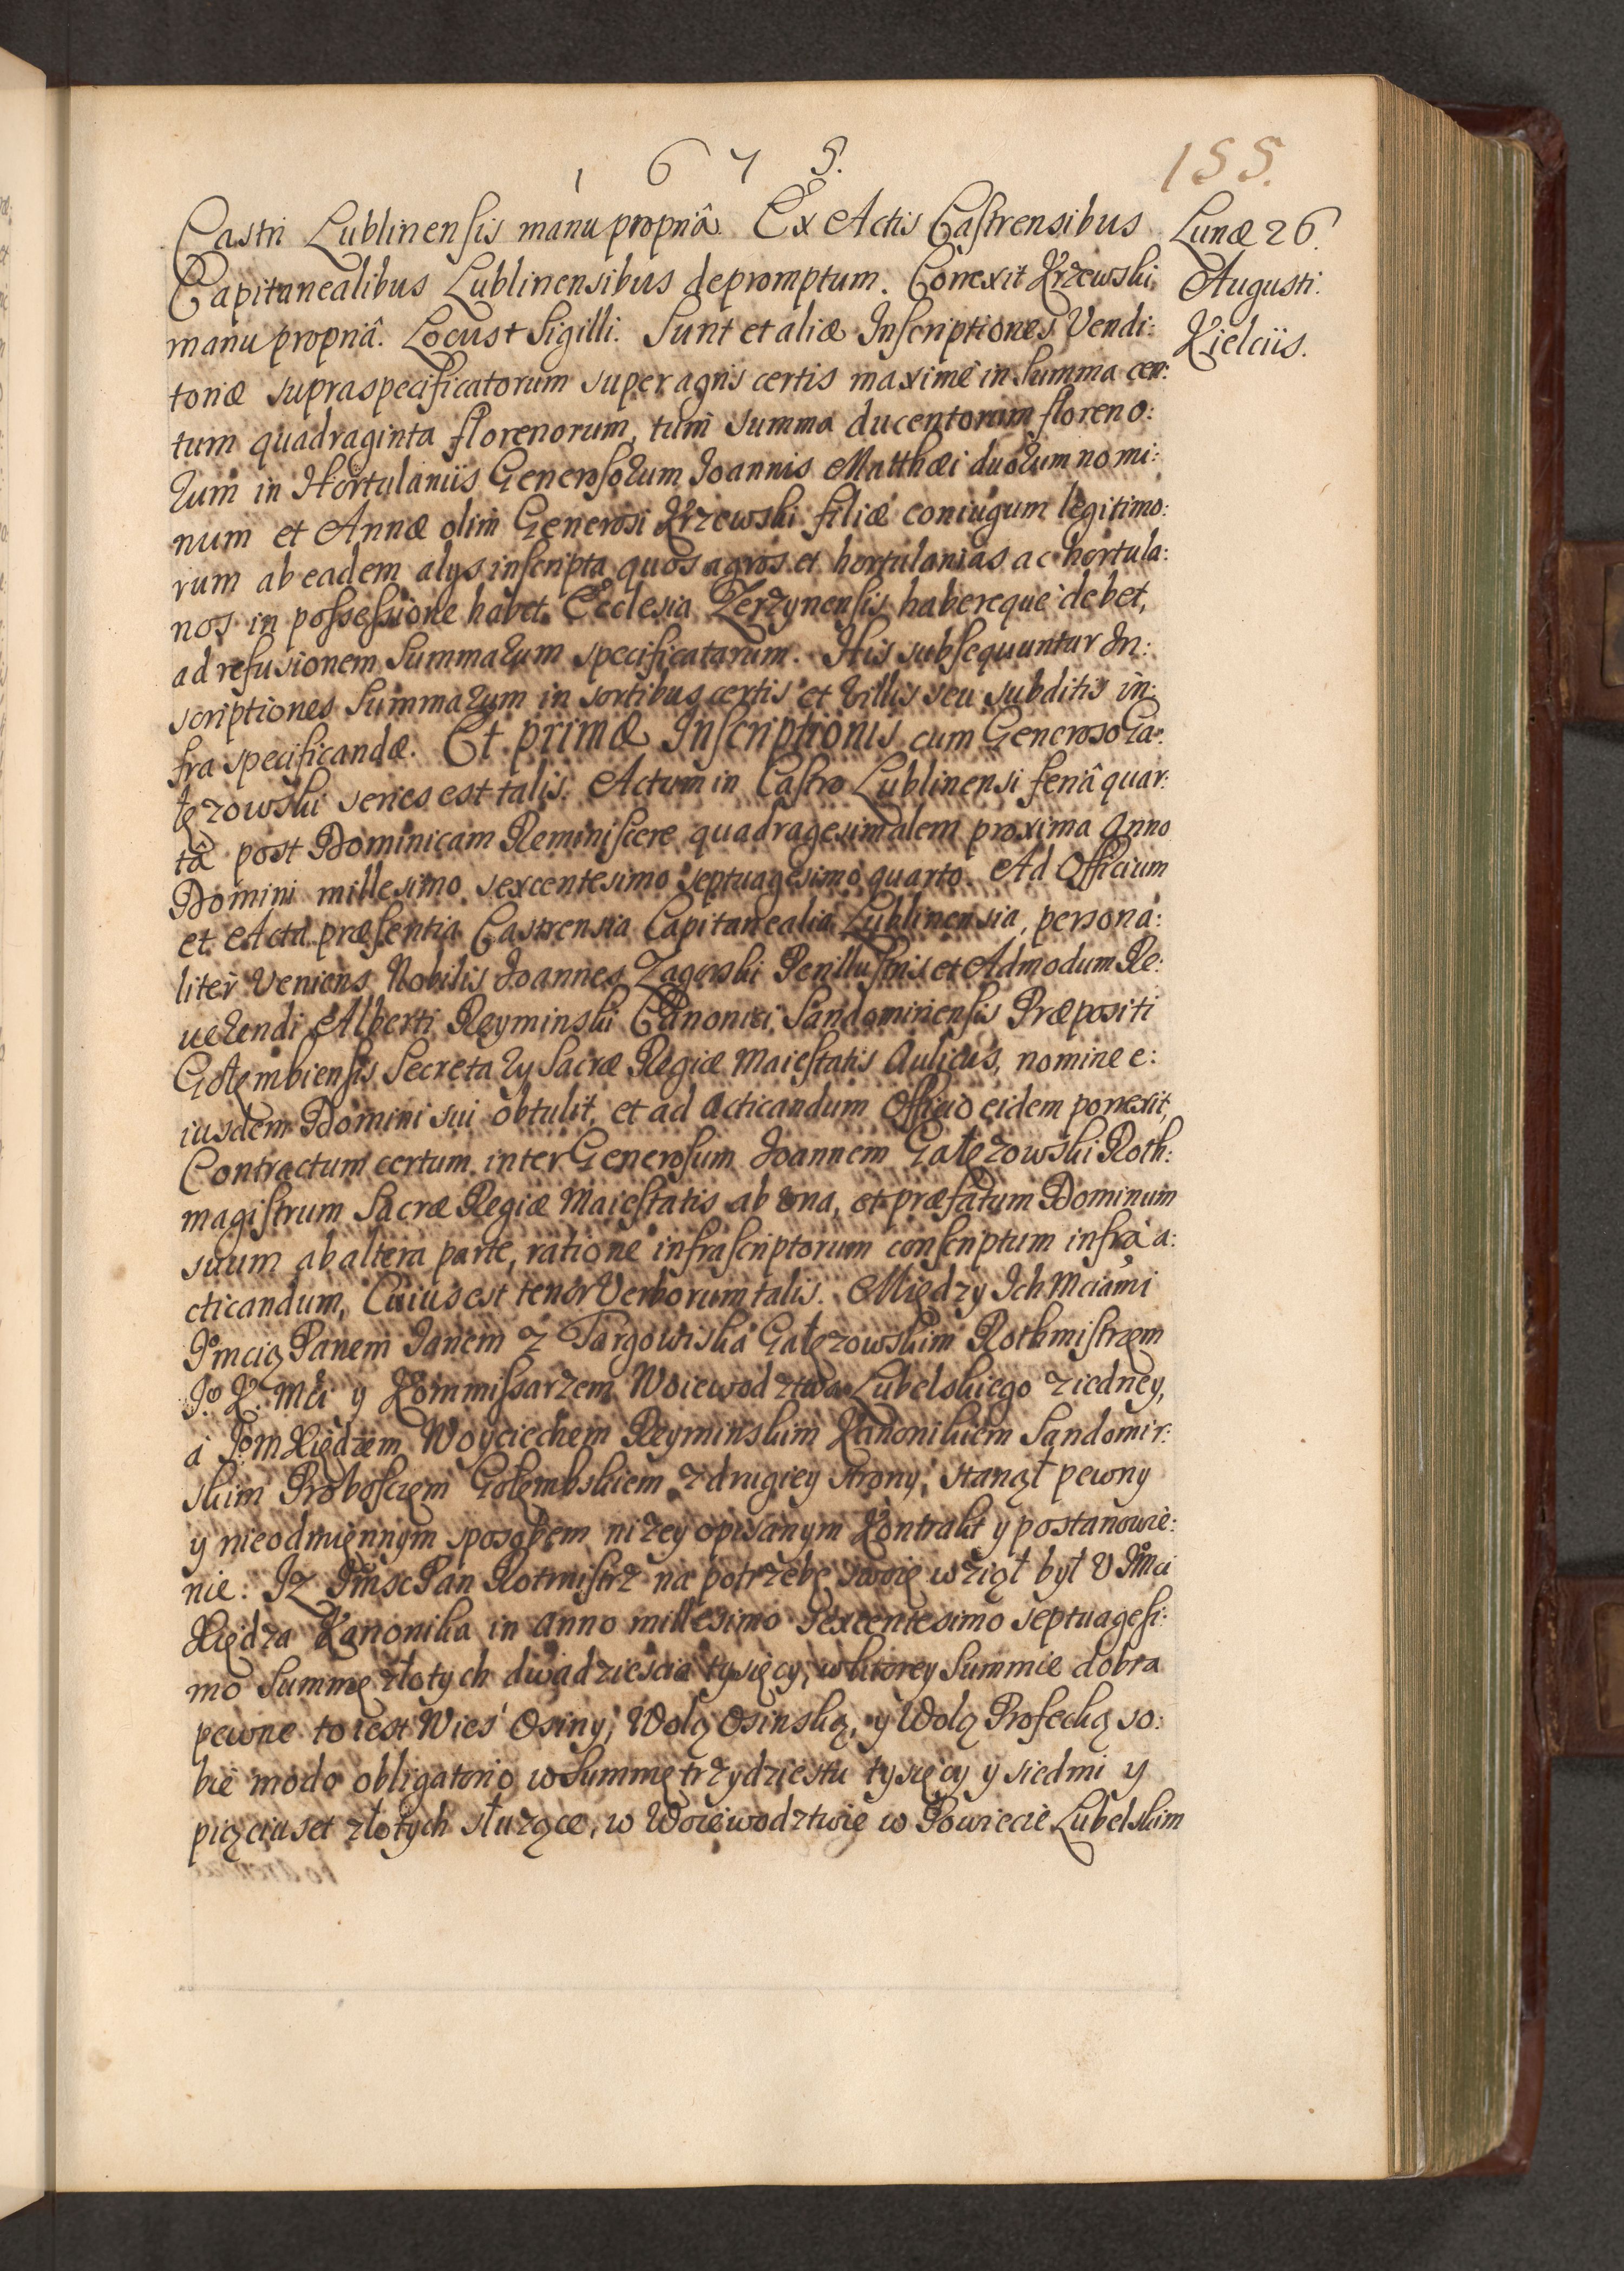 1675.
155.
Castri Lublinensis manu propriâ. Ex Actis Castrensibus
Capitanealibus Lublinensibus depromptum. Conexit Krzewski
manu propriâ. Locus + Sigilli. Sunt et aliæ Inscriptiones Vendi:
toriæ supraspecificatorum super agris certis maximè in Summa cen:
tum quadraginta florenorum, tum summa ducentorum floreno:
rum in Hortulaniis Generosorum Joannis Matthæi duorum nomi:
num et Annæ olim Generosi Krzewski filiæ coniugum legitimo:
rum ab eadem alys inscripta quos agros et hortulanias ac hortula:
nos in possessione habet Ecclesia Zerzynensis habereque debet,
ad refusionem Summarum specificatarum. His subsequuntur In:
scriptiones Summarum in sortibus certis et villis seu subditis in:
fra specificandæ. Et primæ Inscriptionis cum Generoso Ga:
łęzowski series est talis. Actum in Castro Lublinensi feriâ quar:
tâ post Dominicam Reminiscere quadragesimalem proxima Anno
Domini millesimo sexcentesimo septuagesimo quarto. Ad Officium
et Acta præsentia Castrensia Capitanealia Lublinensia, persona:
liter veniens Nobilis Joannes Zagorski Perillustris et Admodum Re:
uerendi Alberti Reyminski Canonici Sandomiriensis Præpositi
Gołembiensis Secretary Sacræ Regiæ Maiestatis Aulicus, nomine e:
iusdem Domini sui obtulit, et ad acticandum Officio eidem porrexit,
Contractum certum inter Generosum Joannem Gałęzowski Roth:
magistrum Sacræ Regiæ Maiestatis ab una, et præfatum Dominum
suum ab altera parte, ratione infrascriptorum conscriptum infrà a:
cticandum, Cuius est tenor Verborum talis. Między Ich Mciami
Jmcią Panem Janem z Targowiska Gałęzowskim Rothmistrzem
Jº K. Mci y Kommissarzem Woiewodztwa Lubelskiego z iedney,
á Jºm Xiędzem Woyciechem Reyminskim Kanonikiem Sandomir:
skim Probosczem Gołembskiem z drugiey strony, stanął pewny
y nieodmiennym sposobem niżey opisanym Kontrakt y postanowie:
nie: Iz Jmsc Pan Rotmistrz na potrzebę swoię wziął był U Jmci
Xiędza Kanonika in Anno millesimo sexcentesimo septuagesi:
mo Summę złotych dwadziescia tysięcy, w ktorey Summie dobra
pewne to iest Wieś Osiny, Wolą Osinską, y Wolą Profecką so:
bie modo obligatorio w Summę trzydziestu tysięcy y siedmi y
piąciuset złotych służące, w Woiewodztwie w Powiecie Lubelskim
Lunæ 26.
Augusti.
Kielciis.